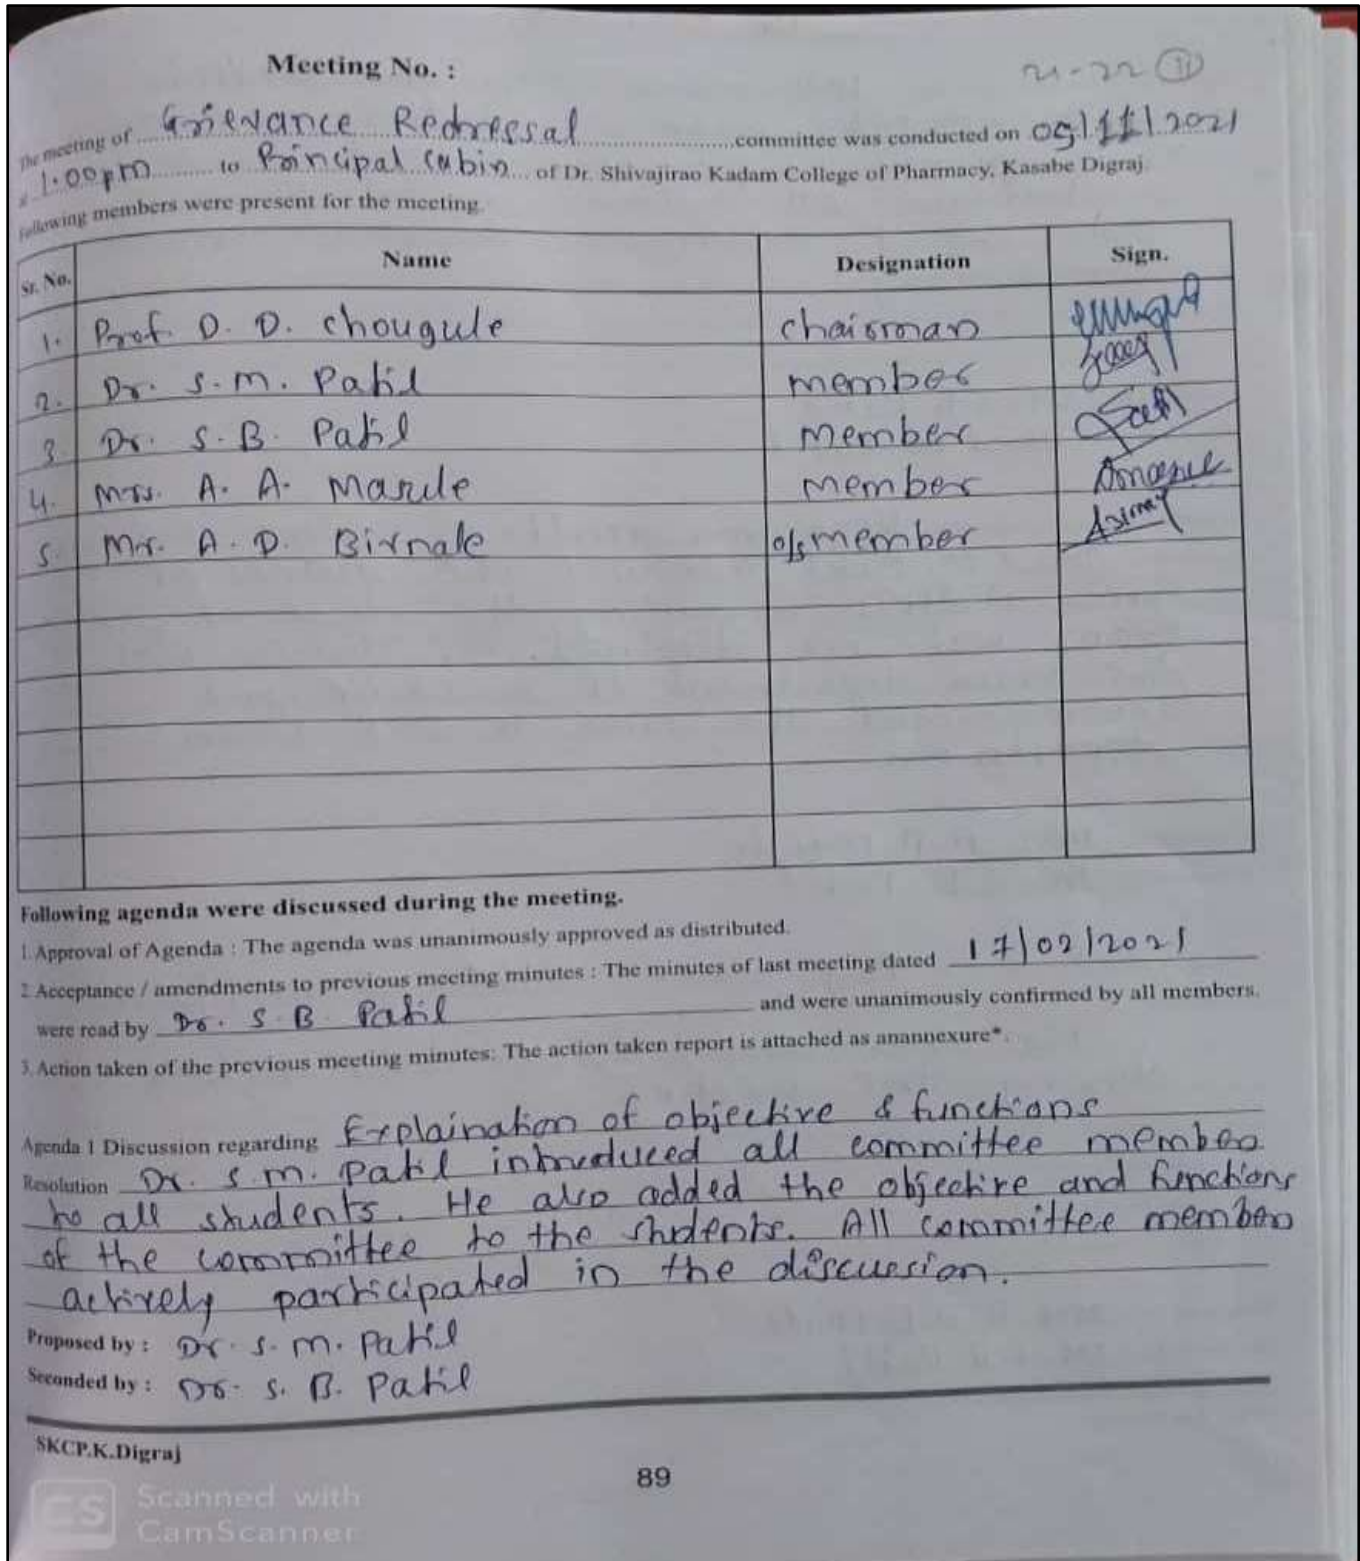 Meeting No. :
21-22 (II)
The meeting of Grievance Redressal committee was conducted on 09/11/2021
at 1.00pm to Principal cabin of Dr. Shivajirao Kadam College of Pharmacy, Kasabe Digraj.
Following members were present for the meeting.
Sr. No. Name Designation Sign.
1. Prof. D. D. Chougule chairman
2. Dr. S. M. Patil member
3. Dr. S. B. Patil member
4. Mrs. A. A. Marule member
5. Mr. A. D. Birnale o/s member
Following agenda were discussed during the meeting.
1. Approval of Agenda : The agenda was unanimously approved as distributed.
2. Acceptance / amendments to previous meeting minutes : The minutes of last meeting dated 17/02/2021
were read by Dr. S B Patil and were unanimously confirmed by all members.
3. Action taken of the previous meeting minutes: The action taken report is attached as anannexure*.
Agenda 1 Discussion regarding Explaination of objective & functions
Resolution Dr. S. M. Patil introduced all committee members
to all students. He also added the objective and functions
of the committee to the students. All committee members
actively participated in the discussion.
Proposed by : Dr. S. M. Patil
Seconded by : Dr. S. B. Patil
SKCP.K.Digraj
89
CS Scanned with
CamScanner